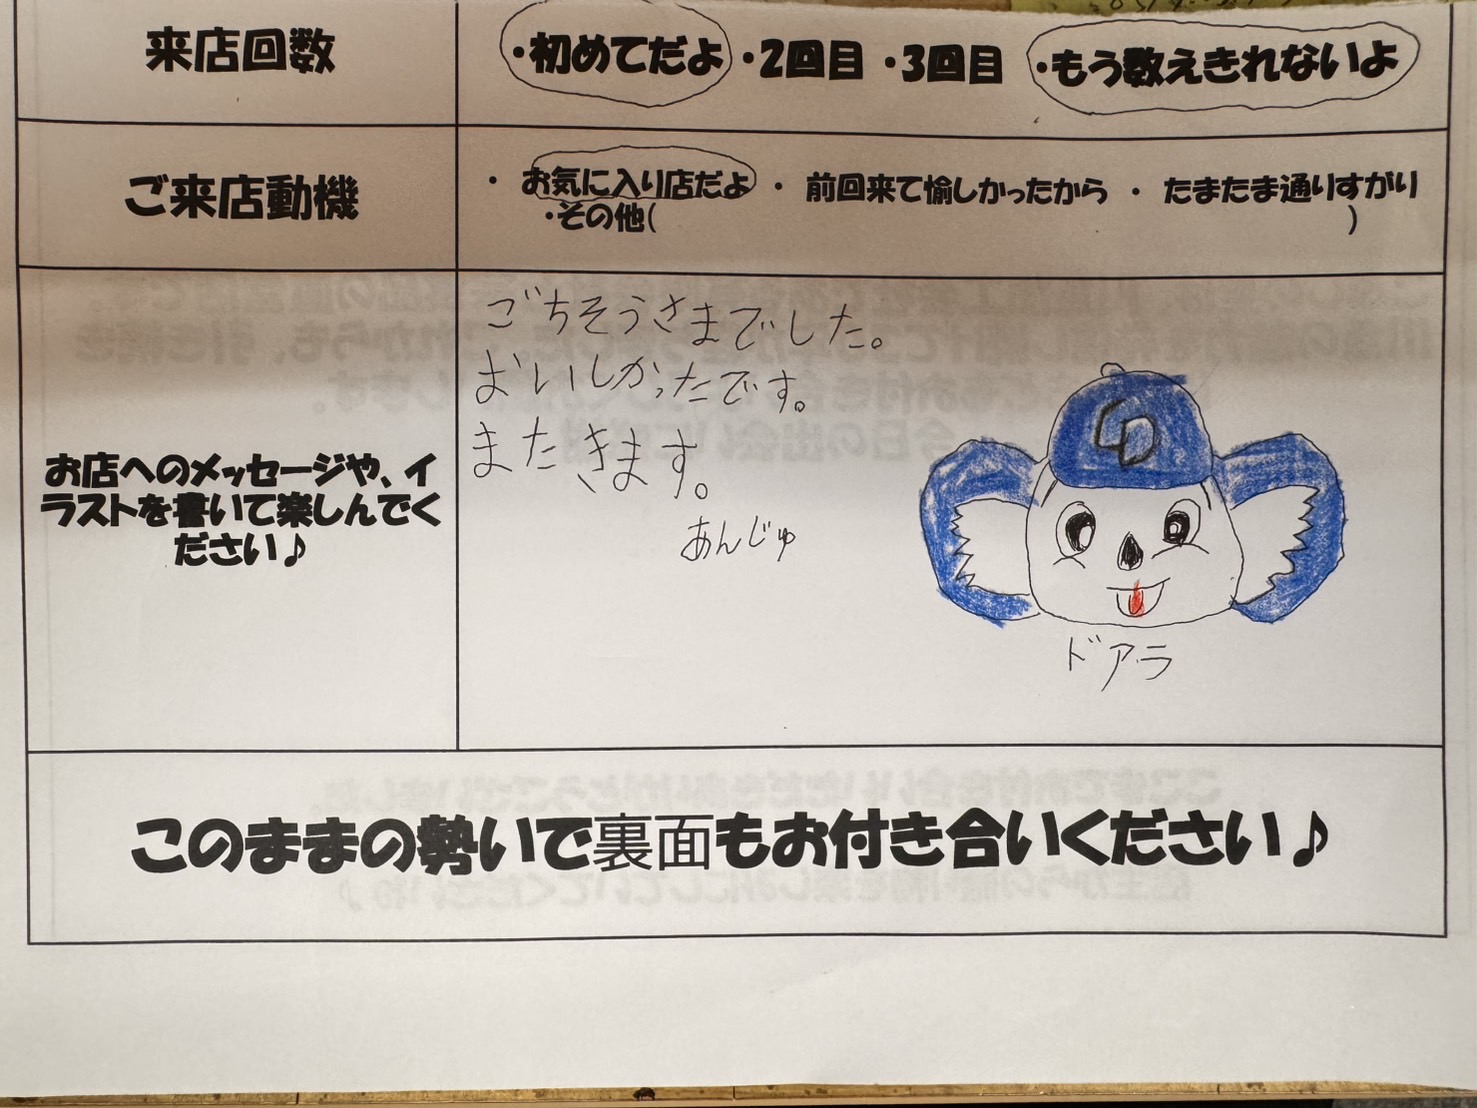 来店回数
・初めてだよ ・2回目 ・3回目 ・もう数えきれないよ
ご来店動機
・ お気に入り店だよ ・ 前回来て愉しかったから ・ たまたま通りすがり
・その他( )
お店へのメッセージや、イ
ラストを書いて楽しんでく
ださい♪
ごちそうさまでした。
おいしかったです。
またきます。
あんじゅ
CD
ドアラ
このままの勢いで裏面もお付き合いください♪